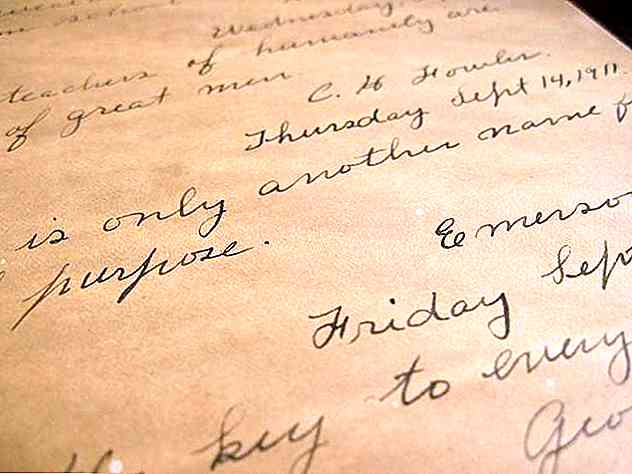 Wednesday
teachers of humanity are
of great men.
C. H Fowler.
Thursday Sept 14, 1911.
is only another name f
purpose.
Emerso
Friday Sep
the key to every
Geo